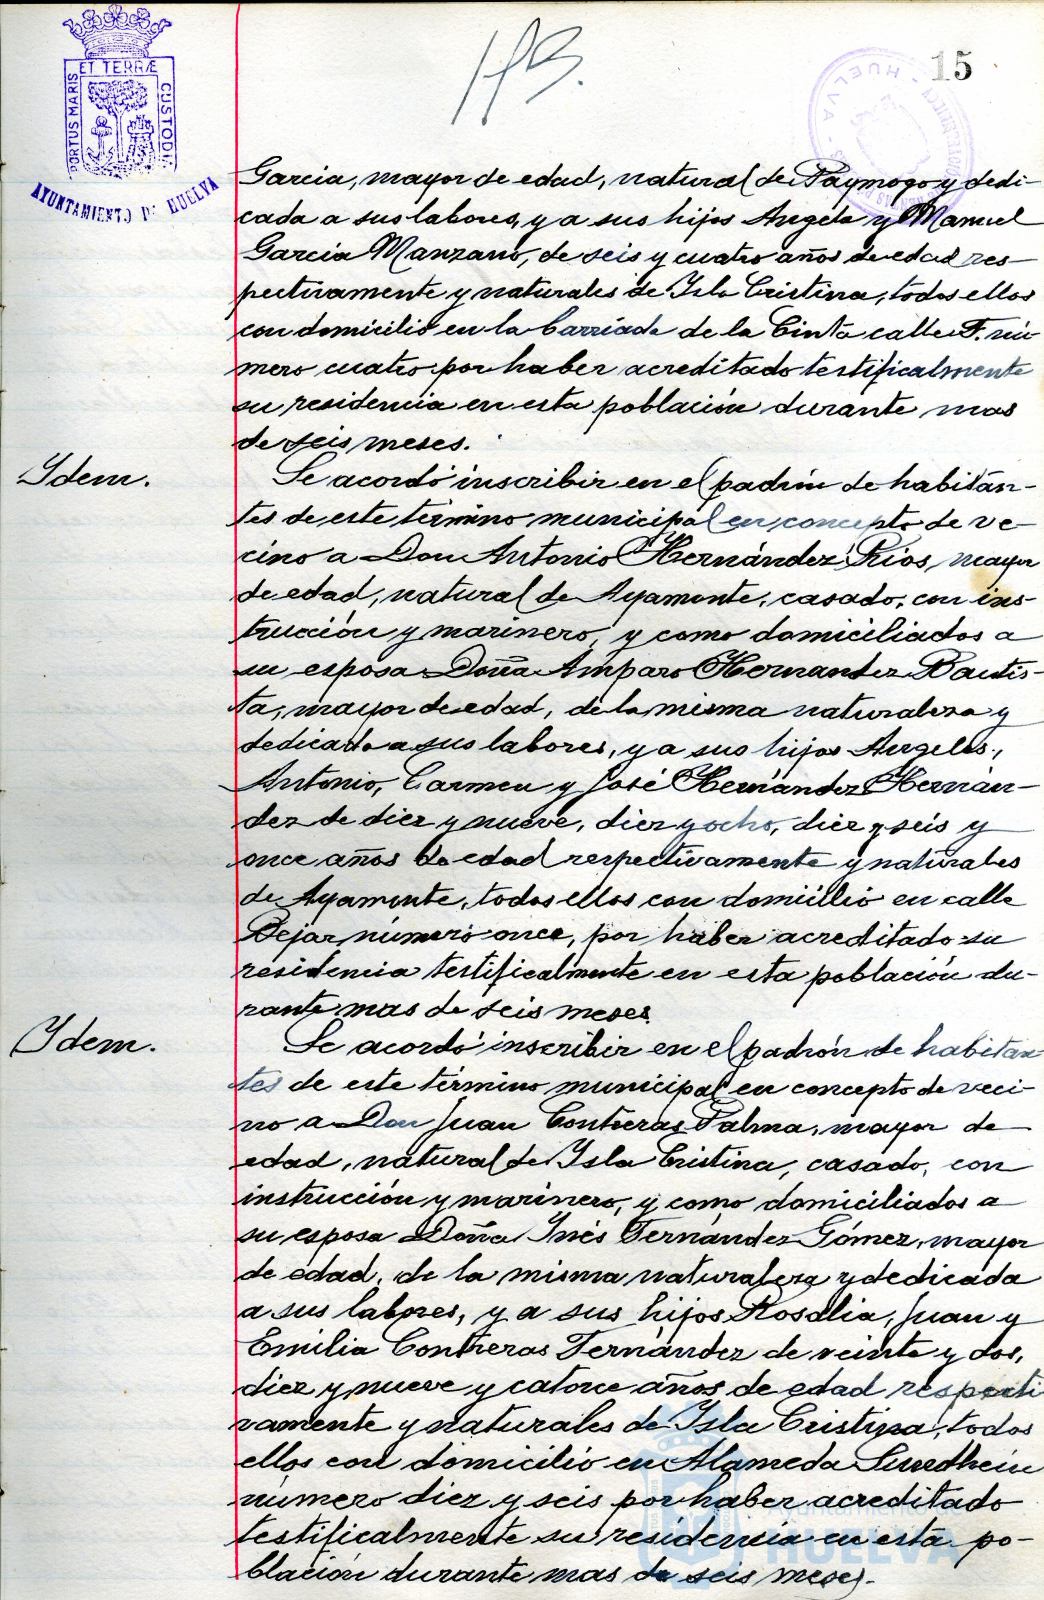 ET TERRÆ
PORTUS MARIS
CUSTODIA
AYUNTAMIENTO DE HUELVA
HUELVA
15
Garcia, mayor de edad, natural de Paymogo y dedi-
cada a sus labores, y a sus hijos Angela y Manuel
Garcia Manzano, de seis y cuatro años de edad res-
pectivamente y naturales de Isla Cristina, todos ellos
con domicilio en la barriada de la Cinta calle F. nú-
mero cuatro por haber acreditado testificalmente
su residencia en esta población durante mas
de seis meses.
Idem.
Se acordó inscribir en el padrón de habitan-
tes de este término municipal en concepto de ve-
cino a Don Antonio Hernández Rios, mayor
de edad, natural de Ayamonte, casado, con ins-
trucción y marinero, y como domiciliados a
su esposa Doña Amparo Hernandez Bautis-
ta, mayor de edad, de la misma naturaleza y
dedicada a sus labores, y a sus hijos Angeles,
Antonio, Carmen y José Hernández Hernán-
dez de diez y nueve, diez y ocho, diez y seis y
once años de edad respectivamente y naturales
de Ayamonte, todos ellos con domicilio en calle
Bejar número once, por haber acreditado su
residencia testificalmente en esta población du-
rante mas de seis meses.
Idem.
Se acordó inscribir en el padrón de habitan
tes de este término municipal en concepto de veci-
no a Don Juan Contreras Palma, mayor de
edad, natural de Isla Cristina, casado, con
instrucción y marinero, y como domiciliados a
su esposa Doña Inés Fernández Gómez, mayor
de edad, de la misma naturaleza y dedicada
a sus labores, y a sus hijos Rosalia, Juan y
Emilia Contreras Fernández de veinte y dos,
diez y nueve y catorce años de edad respecti
vamente y naturales de Isla Cristina, todos
ellos con domicilio en Alameda Sundhein
número diez y seis por haber acreditado
testificalmente su residencia en esta po-
blación durante mas de seis meses.
Ayuntamiento de
HUELVA